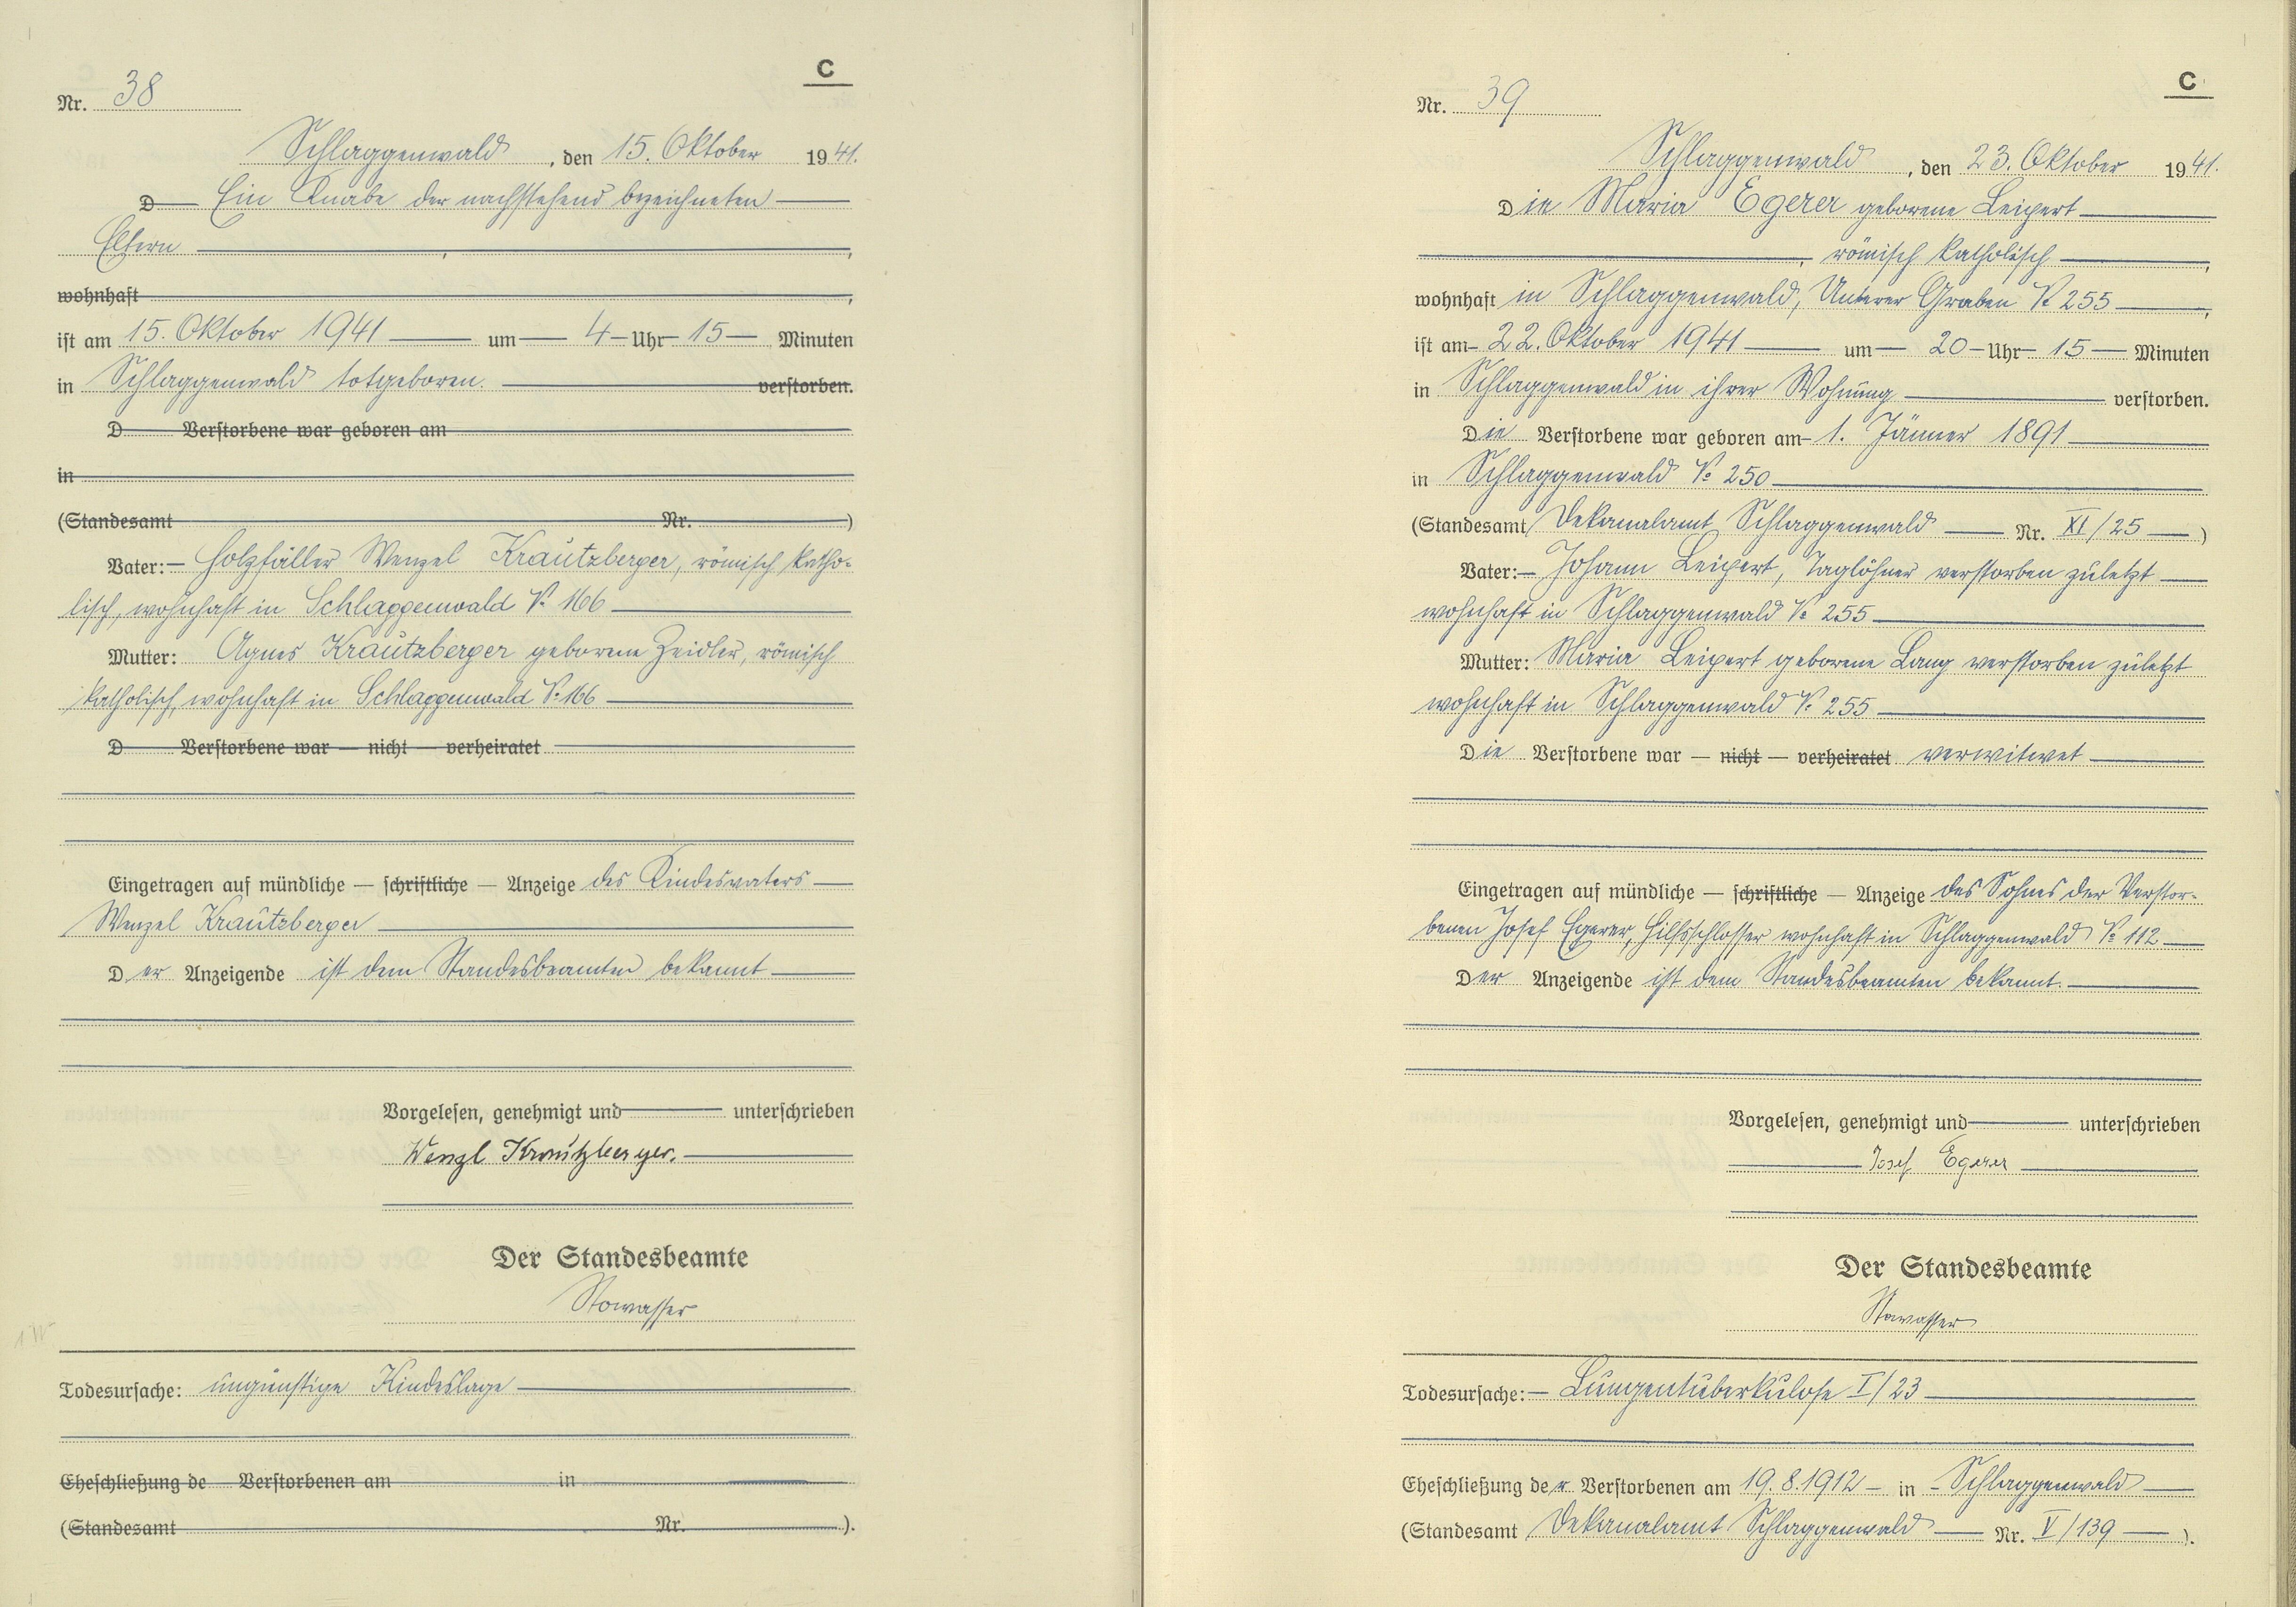 C
Nr. 38
Schlaggenwald, den 15. Oktober 1941.
D Ein Knabe der nachstehend bezeichneten
Eltern
wohnhaft
ist am 15. Oktober 1941 um 4 Uhr 15 Minuten
in Schlaggenwald totgeboren. verstorben.
D Verstorbene war geboren am
in
(Standesamt Nr. )
Vater: Holzfäller Wenzel Krautzberger, römisch katho-
lisch, wohnhaft in Schlaggenwald No 166
Mutter: Agnes Krautzberger geborene Zeidler, römisch
katholisch, wohnhaft in Schlaggenwald No 166
D Verstorbene war — nicht — verheiratet
Eingetragen auf mündliche — schriftliche — Anzeige des Kindesvaters
Wenzel Krautzberger
Der Anzeigende ist dem Standesbeamten bekannt
Vorgelesen, genehmigt und unterschrieben
Wenzl Krautzberger.
Der Standesbeamte
Stowasser
Todesursache: ungünstige Kindeslage
Eheschließung de Verstorbenen am in
(Standesamt Nr. ).
C
Nr. 39
Schlaggenwald, den 23. Oktober 1941.
Die Maria Egerer geborene Leipert
, römisch katholisch,
wohnhaft in Schlaggenwald, Unterer Graben No 255,
ist am 22. Oktober 1941 um 20 Uhr 15 Minuten
in Schlaggenwald in ihrer Wohnung verstorben.
Die Verstorbene war geboren am 1. Jänner 1891
in Schlaggenwald No 250
(Standesamt Dekanalamt Schlaggenwald Nr. XI/25)
Vater: Johann Leipert, Taglöhner verstorben zuletzt
wohnhaft in Schlaggenwald No 255
Mutter: Maria Leipert geborene Lang verstorben zuletzt
wohnhaft in Schlaggenwald No 255
Die Verstorbene war — nicht — verheiratet verwitwet
Eingetragen auf mündliche — schriftliche — Anzeige des Sohnes der Verstor-
benen Josef Egerer, Hilfsschlosser wohnhaft in Schlaggenwald No 112
Der Anzeigende ist dem Standesbeamten bekannt.
Vorgelesen, genehmigt und unterschrieben
Josef Egerer
Der Standesbeamte
Stowasser
Todesursache: Lungentuberkulose I/23
Eheschließung der Verstorbenen am 19.8.1912 in Schlaggenwald
(Standesamt Dekanalamt Schlaggenwald Nr. V/139).